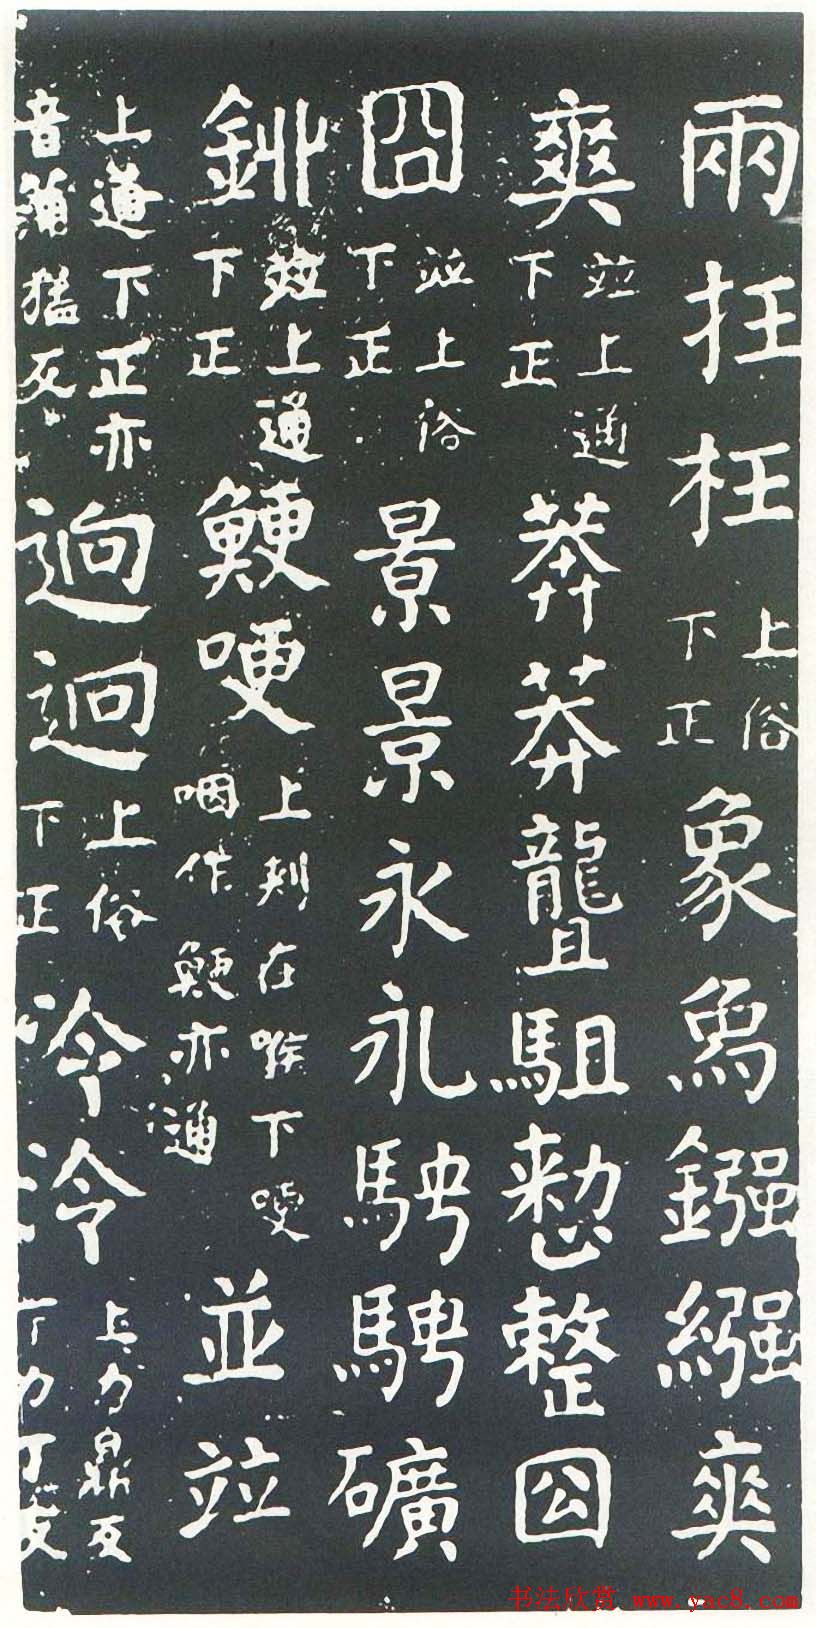 兩抂枉上俗下正象𤉢鏹繦㚓
爽並上通下正莽莽䶥駔愸整囜
囧並上俗下正景景永永駚騁礦
鉚並上通下正鯁哽上刺在喉下哽咽作鯁亦通並竝
上通下正亦音猛反逈迥上俗下正冷泠上力鼎反下力丁反
书法欣赏 www.yac8.com